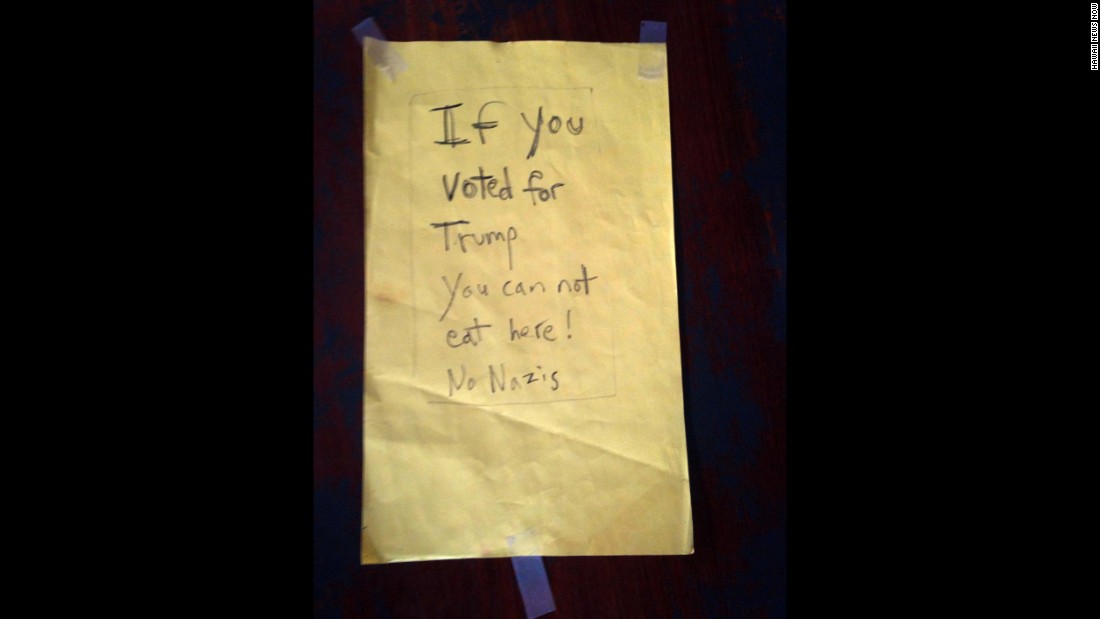 If you
voted for
Trump
you can not
eat here!
No Nazis
HAWAII NEWS NOW